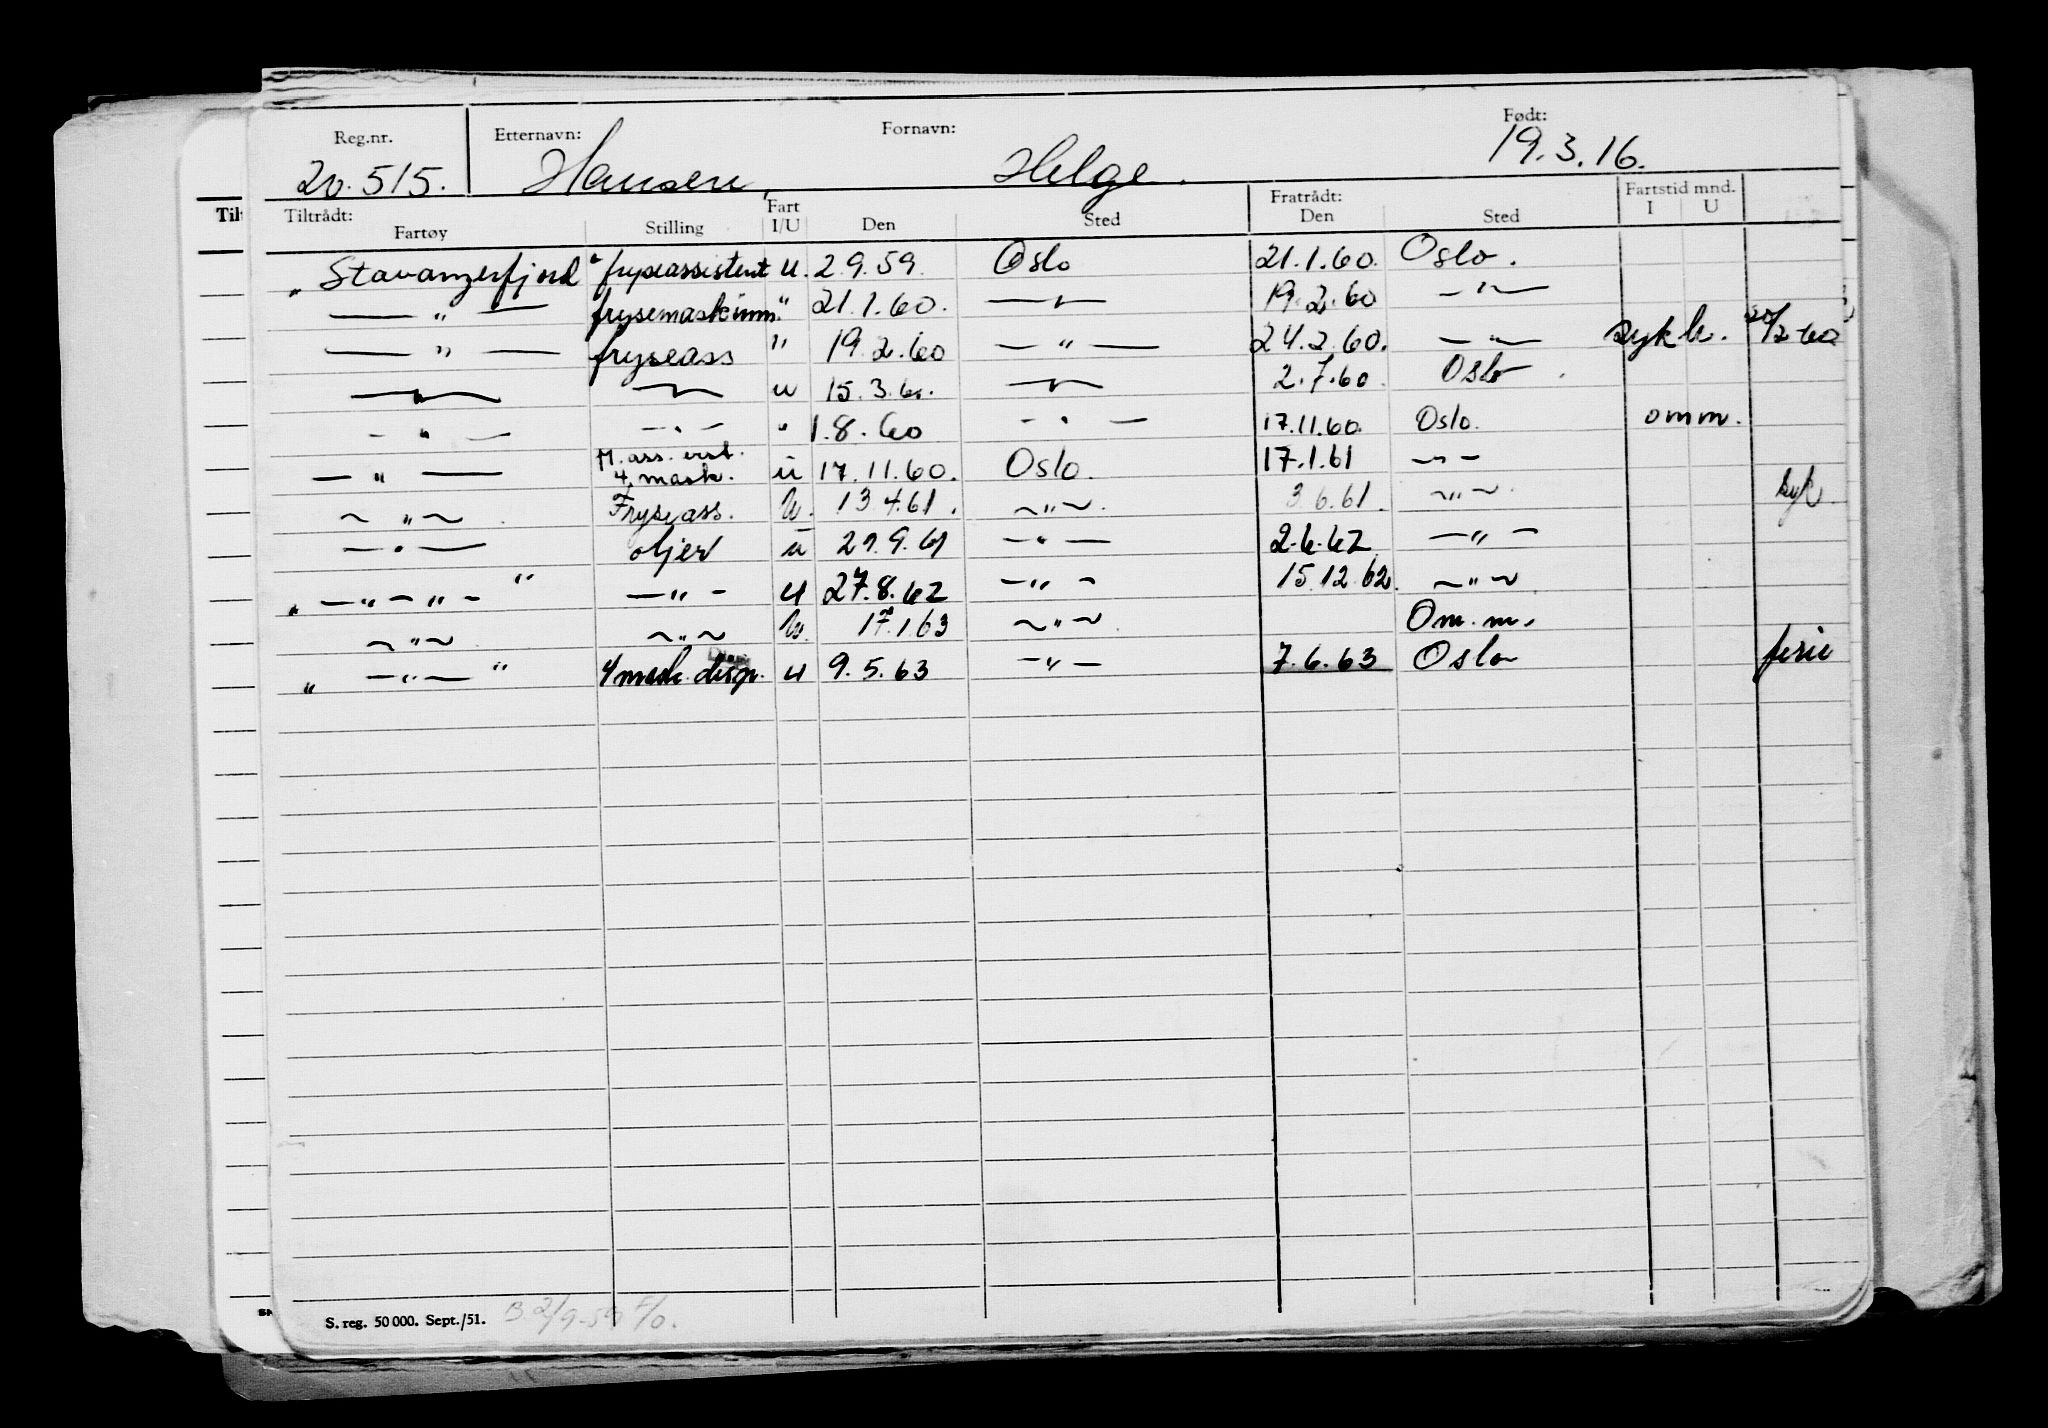 Reg.nr. Etternavn: Fornavn: Født:
20.515. Hansen, Helge. 19.3.16.
Tiltrådt: Fart Fratrådt: Fartstid mnd.
Fartøy Stilling I/U Den Sted Den Sted I U
"Stavangerfjord" fryseassistent u. 2.9.59. Oslo 21.1.60. Oslo.
— " — frysemaskinm. " 21.1.60. — " — 19.2.60 — " —
— " — fryseass " 19.2.60 — " — 24.2.60. — " — sykh. 20/2-60
— " — — " — u 15.3.60. — " — 2.7.60. Oslo.
— " — — " — " 1.8.60 — " — 17.11.60. Oslo. omm.
— " — M.ass. 4 mask. u 17.11.60. Oslo. 17.1.61 — " —
— " — Fryseass. U. 13.4.61. — " — 3.6.61. — " — syk
— " — oljer u 29.9.61 — " — 2.6.62 — " —
" — " — " — " — " — u 27.8.62 — " — 15.12.62. — " —
— " — — " — U. 17.1.63 — " — Om.m.
" — " — " 4 mask. disp. u 9.5.63 — " — 7.6.63 Oslo ferie
S. reg. 50 000. Sept./51. B 2/9-59
Til